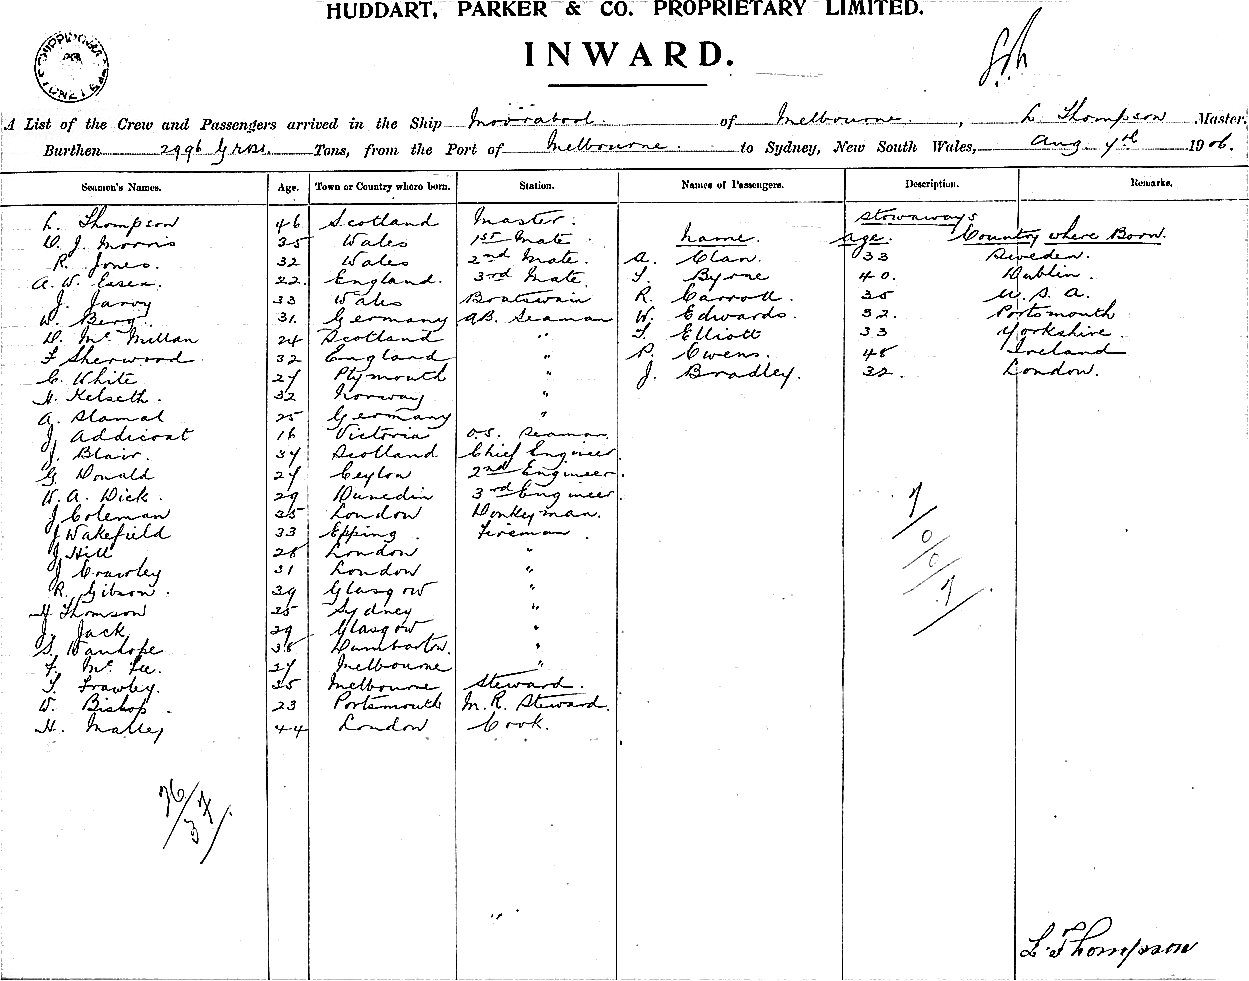 HUDDART, PARKER & CO. PROPRIETARY LIMITED.
INWARD.
A List of the Crew and Passengers arrived in the Ship Moorabool of Melbourne, L. Thompson Master,
Burthen 2996 Gross Tons, from the Port of Melbourne to Sydney, New South Wales, Aug 7th 1906.
Seamen's Names. Age. Town or Country where born. Station. Names of Passengers. Description. Remarks.
Stowaways
L. Thompson 46 Scotland Master.
name. age. Country where Born.
D. J. Morris 35 Wales 1st Mate A. Clan. 33 Sweden.
R. Jones. 32 Wales 2nd Mate. T. Byrne 40. Dublin.
A. W. 22 England. 3rd Mate R. Carroll. 35 U. S. A.
J. Jarvy 33 Wales Boatswain W. Edwards. 32. Portsmouth
W. Berg. 31. Germany AB. Seaman T. Elliott 33 Yorkshire
D. Mc Millan 24 Scotland " P. Owens. 48 Ireland
F. Sherwood 32 England " J. Bradley. 32. London.
C. White 27 Plymouth "
H. Kelseth. 32 Norway "
A. Slamal 25 Germany "
J. Addicoat 16 Victoria O.S. Seaman.
J. Blair. 37 Scotland Chief Engineer
G. Donald 27 Ceylon 2nd Engineer
W. A. Dick. 29 Dunedin 3rd Engineer.
J Coleman 35 London Donkeyman.
J Wakefield 33 Epping. Fireman.
J. Hill 28 London "
J Crawley 31 London "
R. Gibson. 39 Glasgow "
H Thomson 25 Sydney "
J. Jack 29 Glasgow "
S. Wanhope 38 Dumbarton. "
F. Mc Lee. 27 Melbourne "
T. Frawley. 35 Melbourne Steward.
W. Bishop 23 Portsmouth M. R. Steward.
H. Malley 44 London Cook.
7/0/0/7/
26/37/
L. Thompson